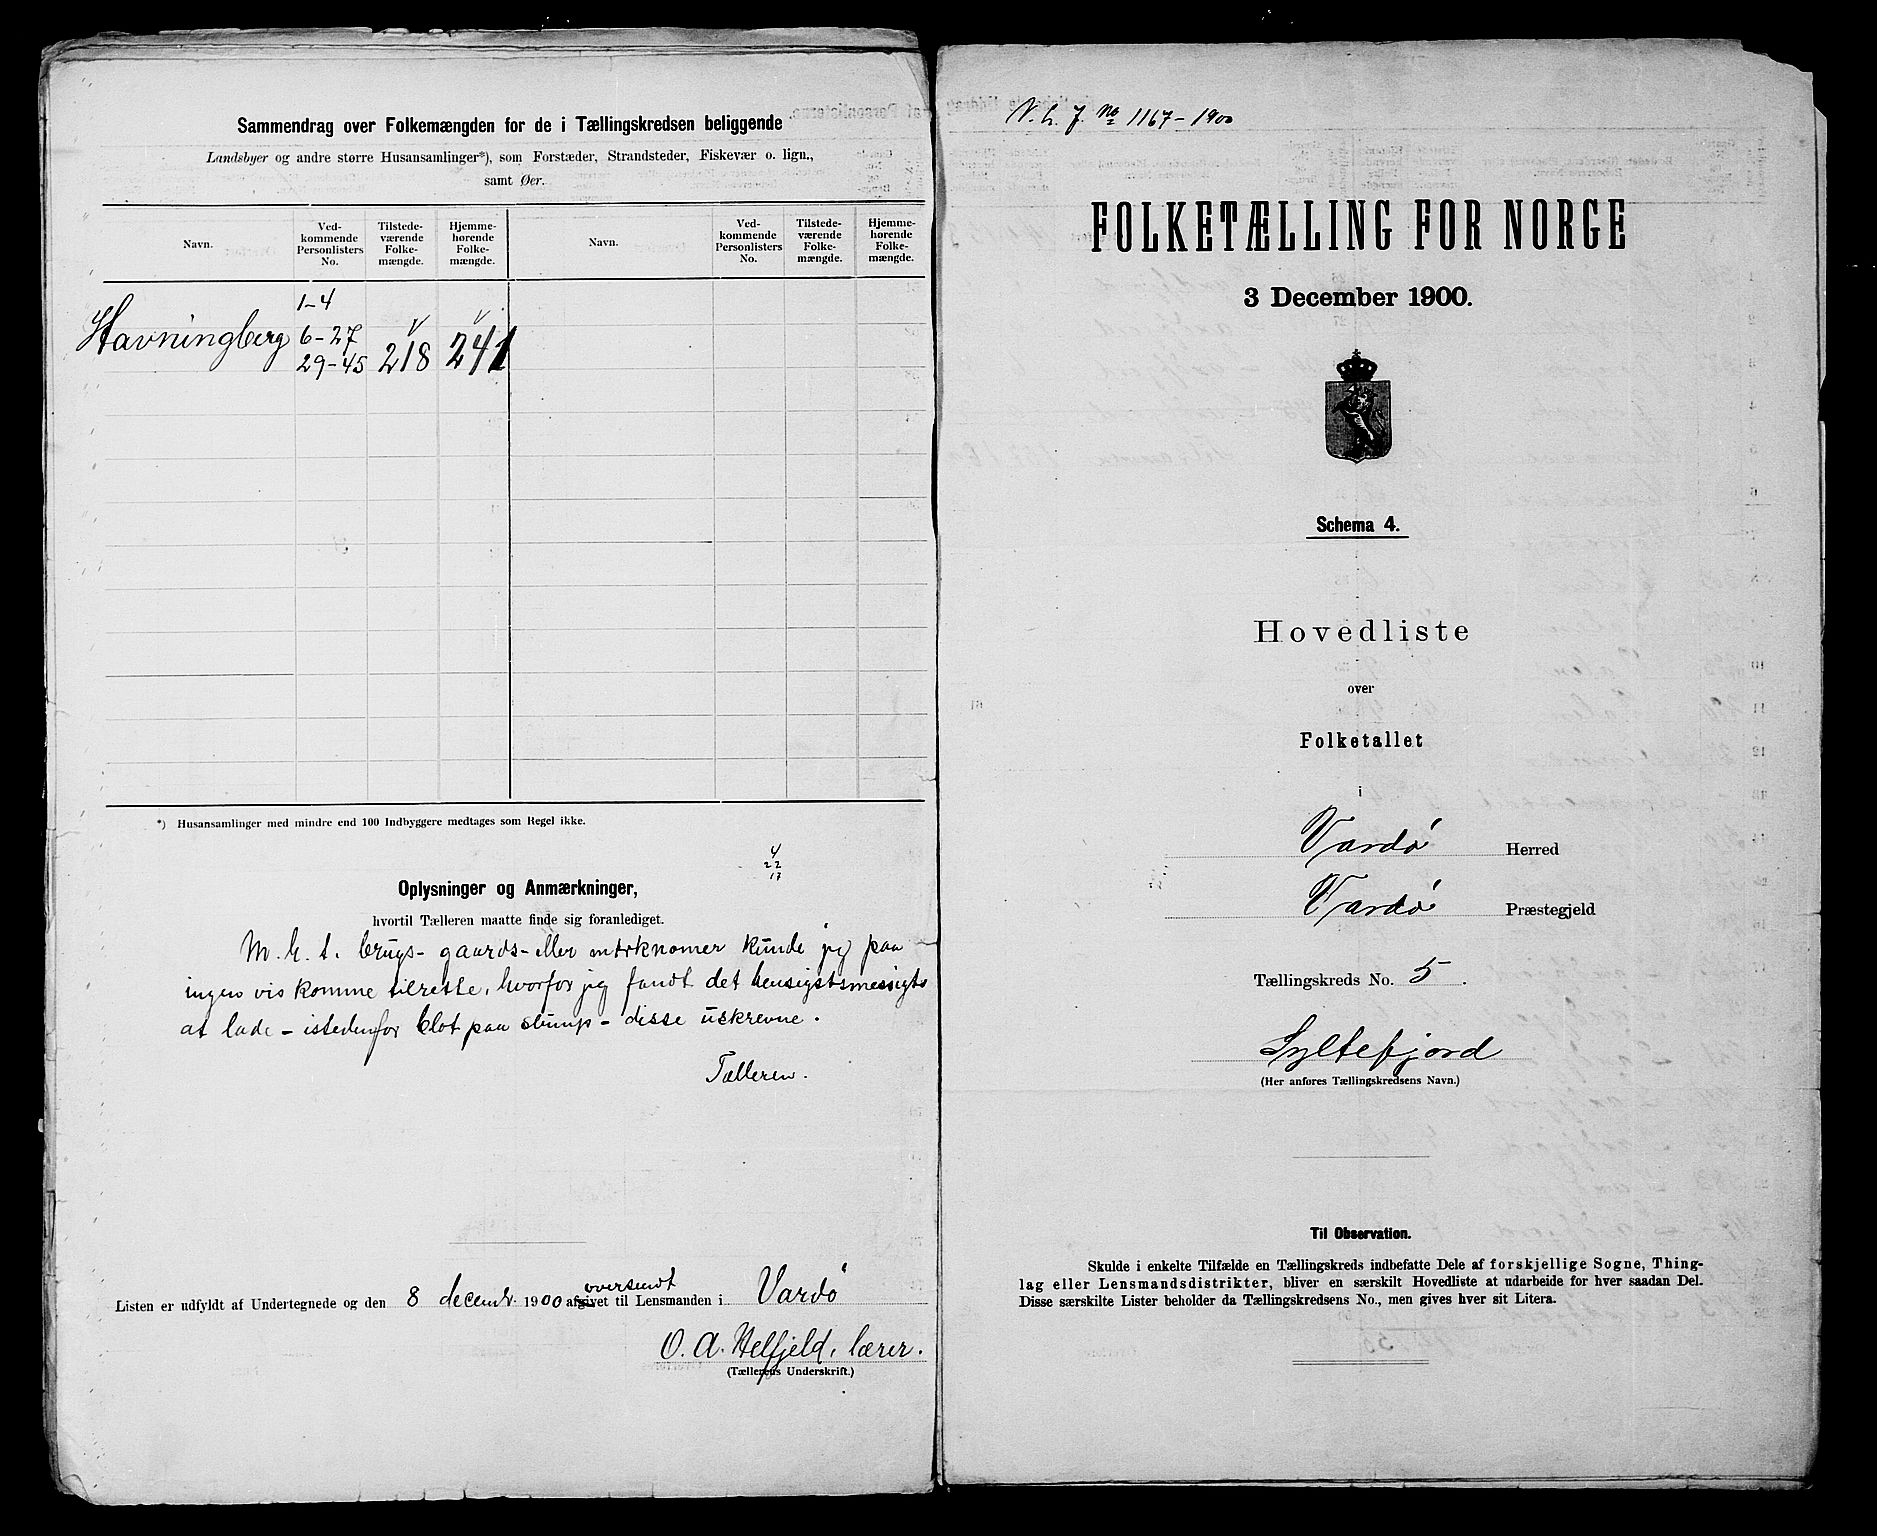 Sammendrag over Folkemængden for de i Tællingskredsen beliggende
Landsbyer og andre større Husansamlinger*), som Forstæder, Strandsteder, Fiskevær o. lign.,
samt Øer.
Navn.
Ved-
kommende
Personlisters
No.
Tilstede-
værende
Folke-
mængde.
Hjemme-
hørende
Folke-
mængde.
Navn.
Ved-
kommende
Personlisters
No.
Tilstede-
værende
Folke-
mængde.
Hjemme-
hørende
Folke-
mængde.
1-4
Havningberg 6-27
29-45 218 241
*) Husansamlinger med mindre end 100 Indbyggere medtages som Regel ikke.
4
22
17
Oplysninger og Anmærkninger,
hvortil Tælleren maatte finde sig foranlediget.
M. h. t. brugs- gaards- eller matrknomer kunde jeg paa
ingen vis komme tilrette, hvorfor jeg fandt det hensigstsmessigts
at lade - istedenfor blot paa slump - disse uskrevne.
Tælleren.
oversendt
Listen er udfyldt af Undertegnede og den 8 decembr. 1900 afgivet til Lensmanden i Vardø
O. A. Helfjeld, lærer.
(Tællerens Underskrift.)
V. L. J. No 1167-1900
FOLKETÆLLING FOR NORGE
3 December 1900.
Schema 4.
Hovedliste
over
Folketallet
i
Vardø Herred
Vardø Præstegjeld
Tællingskreds No. 5.
Syltefjord
(Her anføres Tællingskredsens Navn.)
Til Observation.
Skulde i enkelte Tilfælde en Tællingskreds indbefatte Dele af forskjellige Sogne, Thing-
lag eller Lensmandsdistrikter, bliver en særskilt Hovedliste at udarbeide for hver saadan Del.
Disse særskilte Lister beholder da Tællingskredsens No., men gives hver sit Litera.